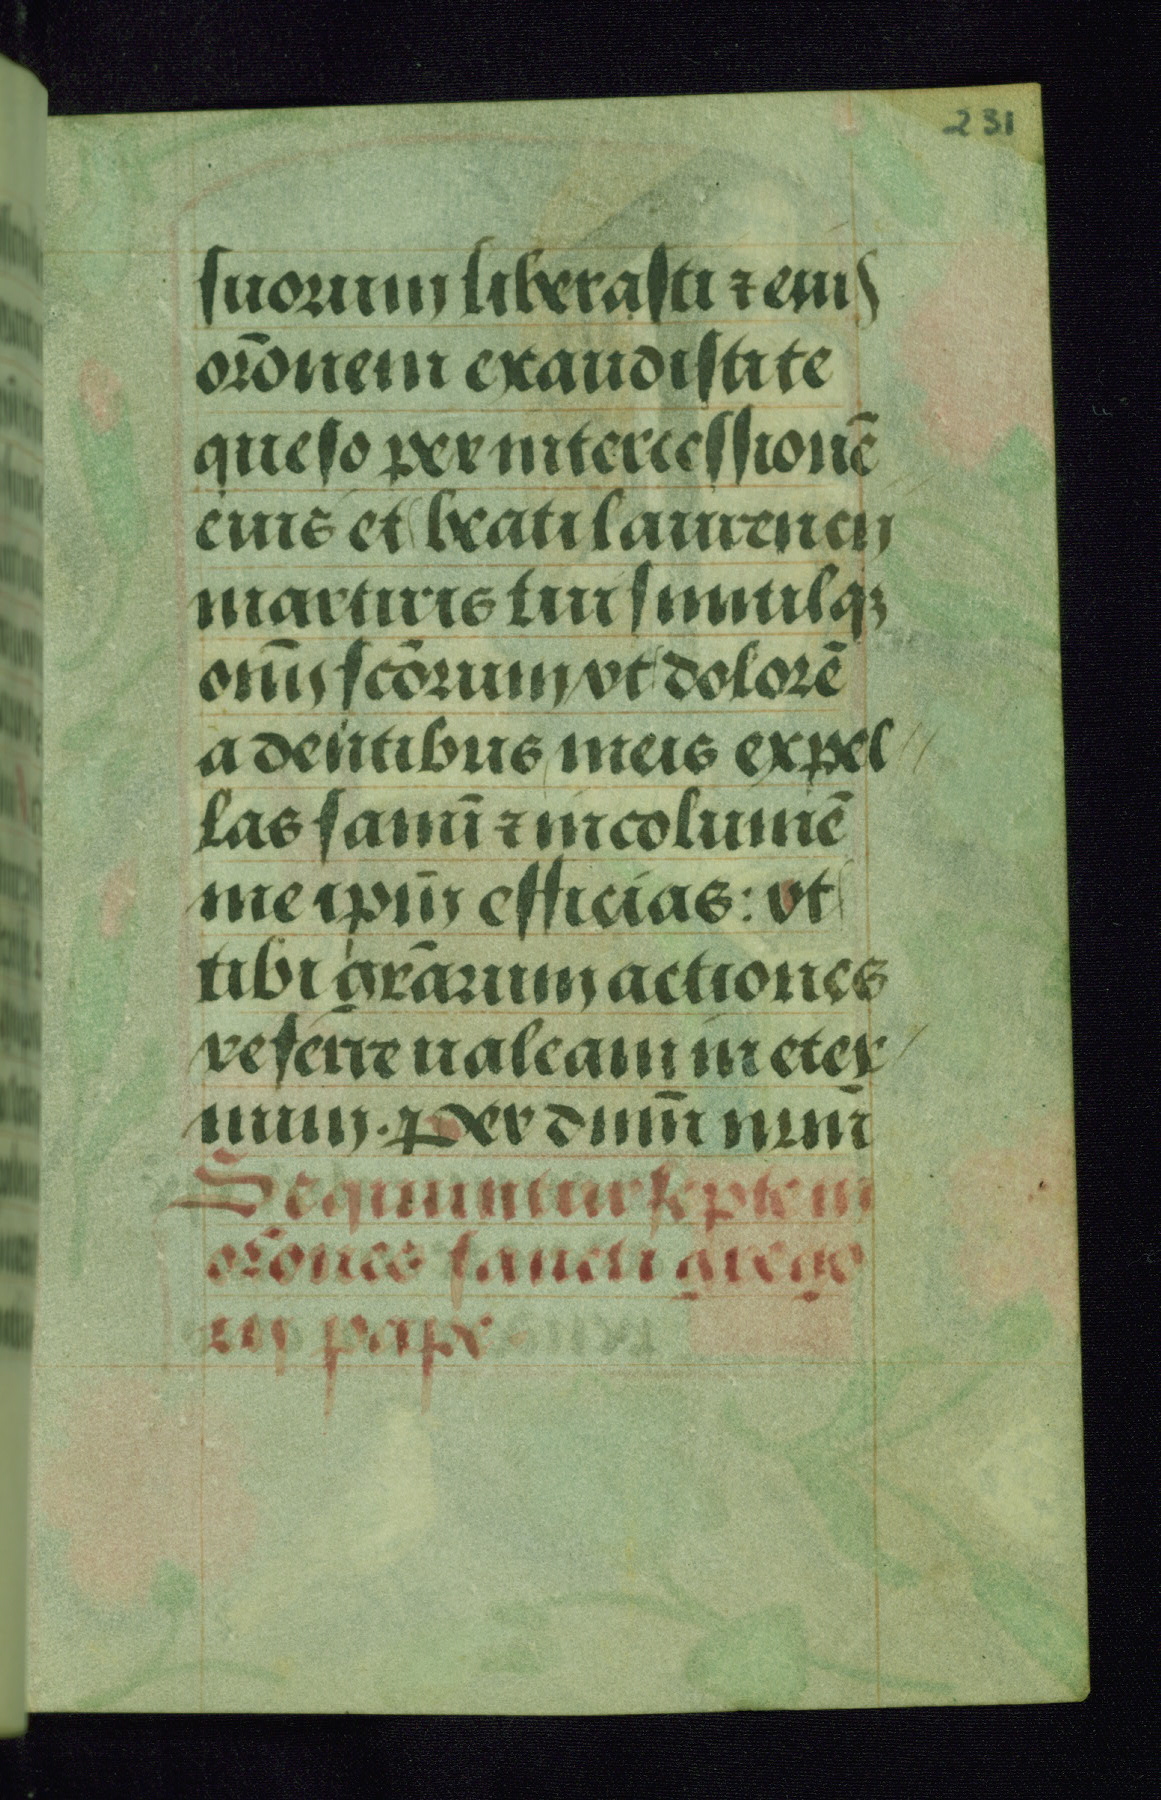 231
suorum liberasti ⁊ eius
orōonem exaudisti te
queso per intercessionē
euis et beati laurencij
martiris tui simulqꝫ
omīj scōrum vt dolorē
a dentibus meis expel
las sanū ⁊ incolumē
me ipm̄ efficias: vt
tibi grārum actiones
referre ualeam in eter
num. Per dnm̄ nrm̄
Sequuntur septem
orōones sancti grego
rij pape